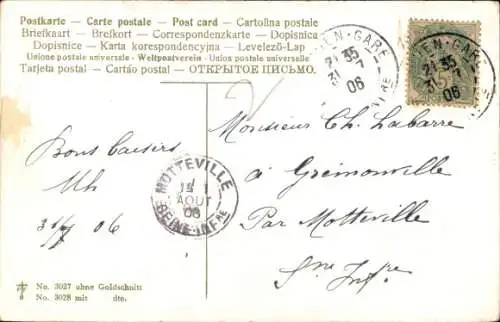 Postkarte - Carte postale - Post card - Cartolina postale
Briefkaart - Brefkort - Correspondenzkarte - Dopisnica
Dopisnice - Karta korespondencyjna - Levelező-Lap
Union postale universelle - Weltpostverein - Union postale universelle
Tarjeta postal - Cartão postal - ОТКРЫТОЕ ПИСЬМО.
EN-GARE
21 35
31-7
06
EN-GARE
21 35
31-7
06
Bons baisers
31/7 06
MOTTEVILLE
1
AOUT
06
SEINE-INFRE
Monsieur Ch. Labarre
à Grémonville
Par Motteville
Sne Infre
No. 3027 ohne Goldschnitt
No. 3028 mit dto.